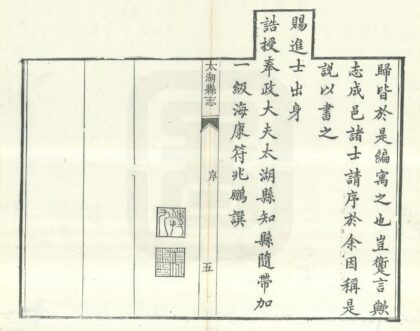 歸皆於是編寓之也豈躗言歟
志成邑諸士請序於余因稱是
說以書之
賜進士出身
誥授奉政大夫太湖縣知縣隨帶加
一級海康符兆鵬譔
太湖縣志
序
五